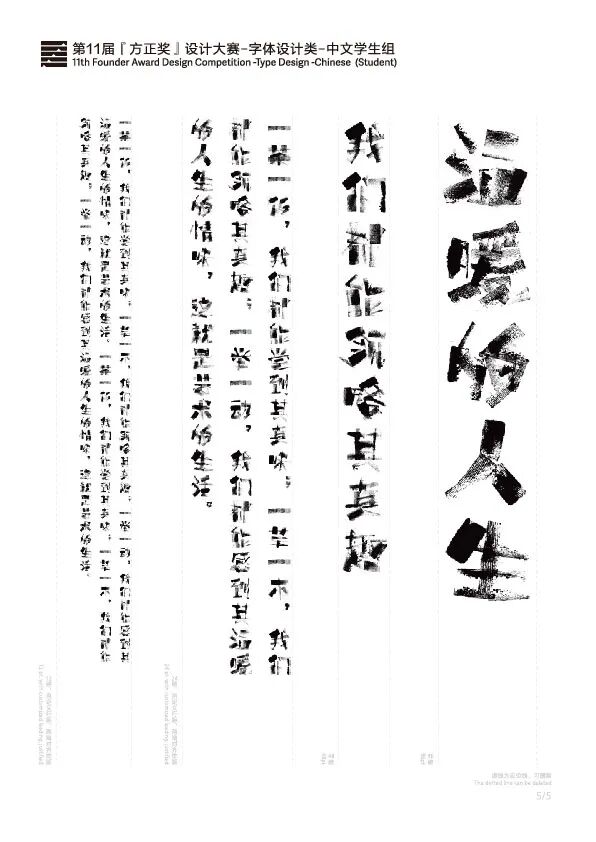 第11届『方正奖』设计大赛-字体设计类-中文学生组
11th Founder Award Design Competition -Type Design -Chinese (Student)
温暖的人生
我们都能领略其真趣
一茶一饭，我们都能尝到其真味，一草一木，我们
都能领略其真趣，一举一动，我们都能感到其温暖
的人生的情味，这就是艺术的生活。
一茶一饭，我们都能尝到其真味，一草一木，我们都能领略其真趣，一举一动，我们都能感到其
温暖的人生的情味，这就是艺术的生活。一茶一饭，我们都能尝到其真味，一草一木，我们都能
领略其真趣，一举一动，我们都能感到其温暖的人生的情味，这就是艺术的生活。
The dotted line can be deleted
5/5